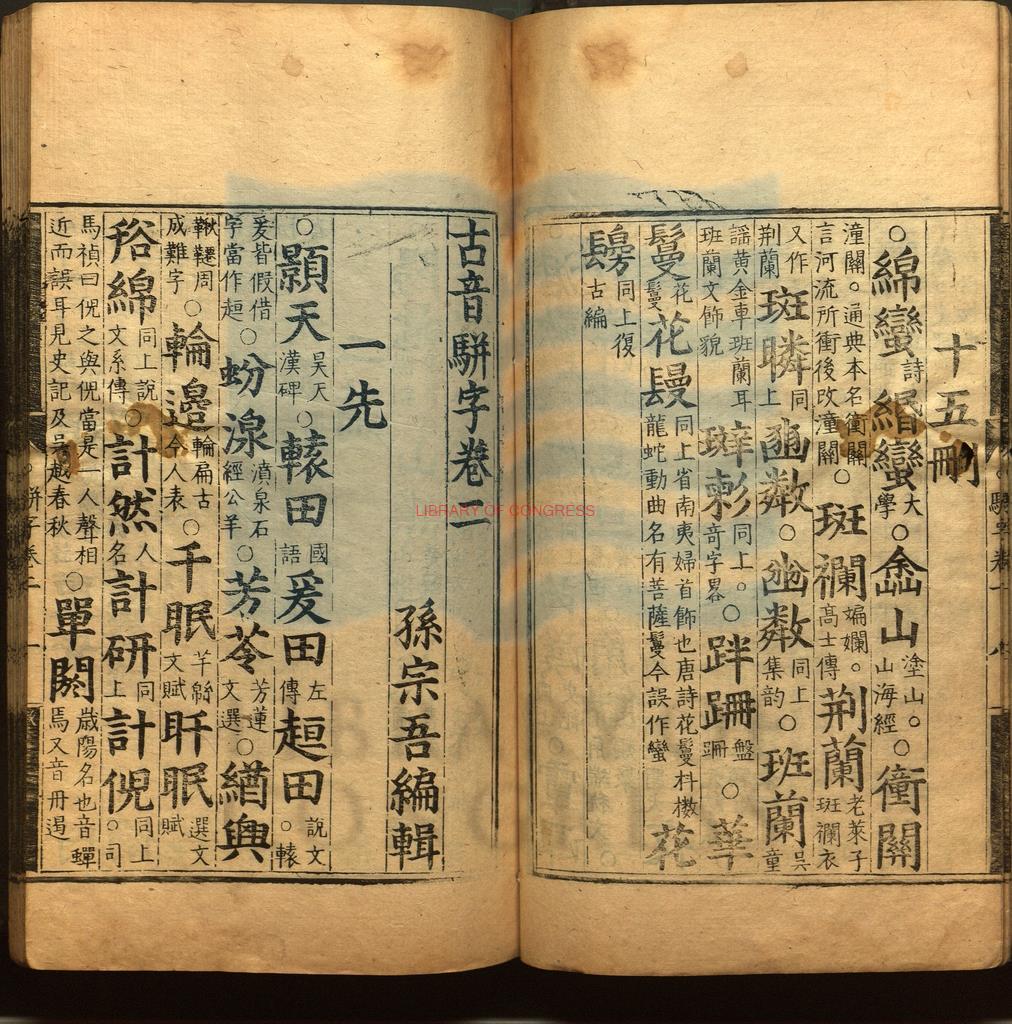 十五刪
○綿蠻詩緡蠻大學○嵞山塗山○山海經○衝關
潼關○通典本名衝關言河流所衝後改潼關○斑襴斒斕○高士傳荆蘭老萊子斑襴衣
又作荆蘭斑璘同上 數○ 數同上集韵○班蘭吳童
謡黄金車班蘭耳班蘭文飾貌 同上○奇字畧○跘跚盤跚○華
鬘花鬘花 同上省南夷婦首飾也唐詩花鬘枓橳龍蛇動曲名有菩薩鬘今誤作蠻花
同上復古編
古音駢字卷二
孫宗吾編輯
一先
○顥天昊天漢碑○轅田國語爰田左傳趄田說文○轅
爰皆假借字當作趄○蚡湶濆泉石經公羊○芳苓芳蓮文選○緧輿
鞦韆周成難字○輪邊輪扁古今人表○千眠芊緜文賦盰眠選文賦
綿同上說文系傳計然人名計研同上計倪同上○司
馬禎曰倪之與倪當是一人聲相近而誤耳見史記及吳越春秋○單閼歲陽名也音蟬焉又音丹遏
駢字卷一
駢字卷二
一
LIBRARY OF CONGRESS